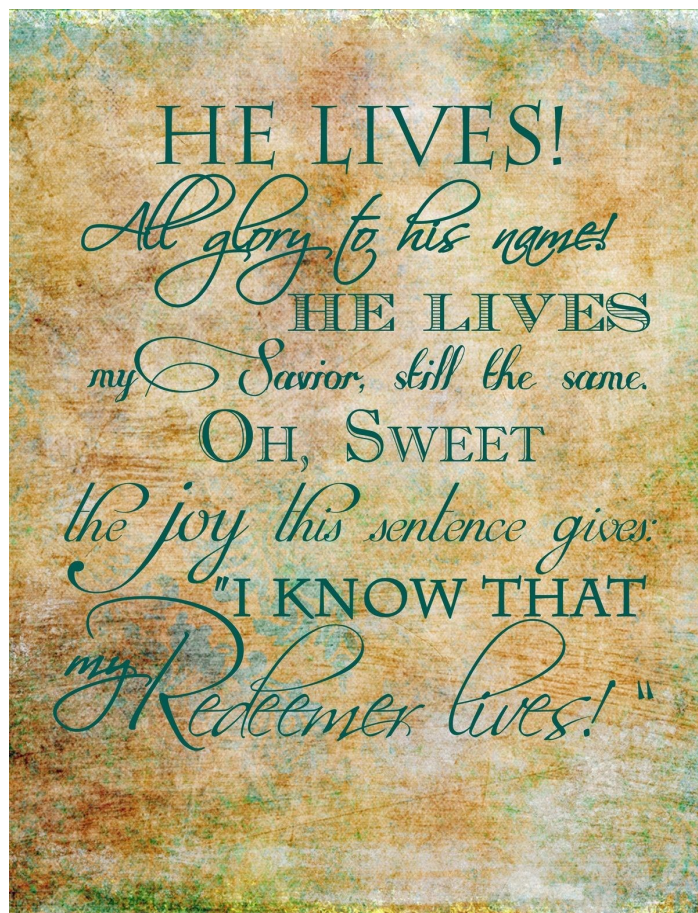 HE LIVES!
All glory to his name!
HE LIVES
my Savior, still the same.
OH, SWEET
the joy this sentence gives:
"I KNOW THAT
my Redeemer lives! "